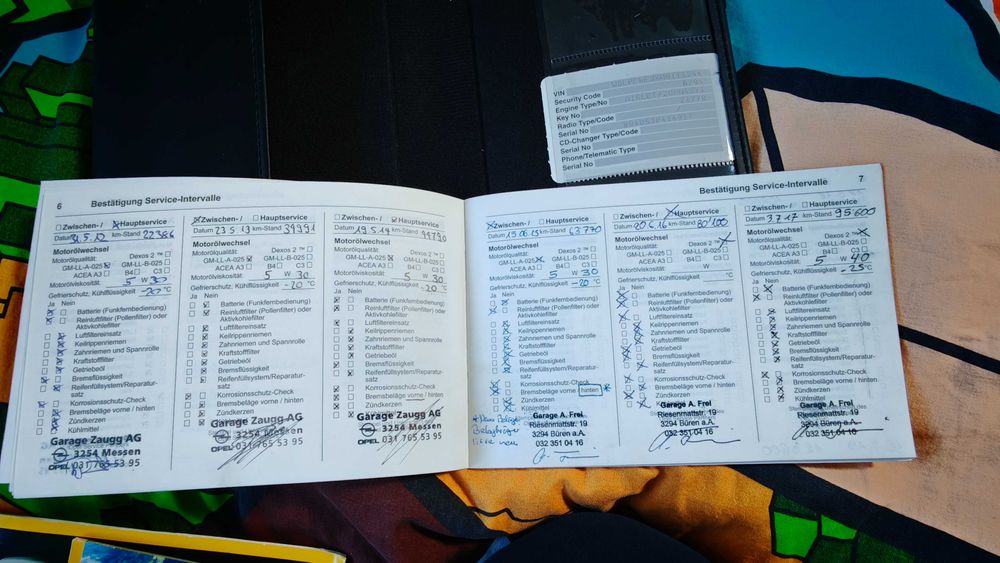 VIN
Security Code
Engine Type/No
Key No
Radio Type/Code
Serial No
CD-Changer Type/Code
Serial No
Phone/Telematic Type
Serial No
6 Bestätigung Service-Intervalle
Zwischen- / Hauptservice
Datum 31.5.12 km-Stand 22386
Motorölwechsel
Motorölqualität: Dexos 2 ™
GM-LL-A-025 GM-LL-B-025
ACEA A3 B4 C3
Motorölviskosität: 5 W 30
Gefrierschutz, Kühlflüssigkeit -20 °C
Ja Nein
Batterie (Funkfernbedienung)
Reinluftfilter (Pollenfilter) oder
Aktivkohlefilter
Luftfiltereinsatz
Keilrippenriemen
Zahnriemen und Spannrolle
Kraftstofffilter
Getriebeöl
Bremsflüssigkeit
Reifenfüllsystem/Reparatur-
satz
Korrosionsschutz-Check
Bremsbeläge vorne / hinten
Zündkerzen
Kühlmittel
Garage Zaugg AG
3254 Messen
OPEL 031 765 53 95
Zwischen- / Hauptservice
Datum 23.5.13 km-Stand 39991
Motorölwechsel
Motorölqualität: Dexos 2 ™
GM-LL-A-025 GM-LL-B-025
ACEA A3 B4 C3
Motorölviskosität: 5 W 30
Gefrierschutz, Kühlflüssigkeit -20 °C
Ja Nein
Batterie (Funkfernbedienung)
Reinluftfilter (Pollenfilter) oder
Aktivkohlefilter
Luftfiltereinsatz
Keilrippenriemen
Zahnriemen und Spannrolle
Kraftstofffilter
Getriebeöl
Bremsflüssigkeit
Reifenfüllsystem/Reparatur-
satz
Korrosionsschutz-Check
Bremsbeläge vorne / hinten
Zündkerzen
Garage Zaugg AG
3254 Messen
OPEL 031 765 53 95
Zwischen- / Hauptservice
Datum 19.5.14 km-Stand
Motorölwechsel
Motorölqualität: Dexos 2 ™
GM-LL-A-025 GM-LL-B-025
ACEA A3 B4 C3
Motorölviskosität: 5 W 30
Gefrierschutz, Kühlflüssigkeit -20 °C
Ja Nein
Batterie (Funkfernbedienung)
Reinluftfilter (Pollenfilter) oder
Aktivkohlefilter
Luftfiltereinsatz
Keilrippenriemen
Zahnriemen und Spannrolle
Kraftstofffilter
Getriebeöl
Bremsflüssigkeit
Reifenfüllsystem/Reparatur-
satz
Korrosionsschutz-Check
Bremsbeläge vorne / hinten
Zündkerzen
Garage Zaugg AG
3254 Messen
OPEL 031 765 53 95
Bestätigung Service-Intervalle 7
Zwischen- / Hauptservice
Datum 15.06.15 km-Stand 63770
Motorölwechsel
Motorölqualität: Dexos 2 ™
GM-LL-A-025 GM-LL-B-025
ACEA A3 B4 C3
Motorölviskosität: 5 W 30
Gefrierschutz, Kühlflüssigkeit -20 °C
Ja Nein
Batterie (Funkfernbedienung)
Reinluftfilter (Pollenfilter) oder
Aktivkohlefilter
Luftfiltereinsatz
Keilrippenriemen
Zahnriemen und Spannrolle
Kraftstofffilter
Getriebeöl
Bremsflüssigkeit
Reifenfüllsystem/Reparatur-
satz
Korrosionsschutz-Check
Bremsbeläge vorne / hinten *
Zündkerzen
Kühlmittel
Garage A. Frei
Riesenmattstr. 19
3294 Büren a.A.
032 351 04 16
Zwischen- / Hauptservice
Datum 20.6.16 km-Stand 80'100
Motorölwechsel
Motorölqualität: Dexos 2 ™
GM-LL-A-025 GM-LL-B-025
ACEA A3 B4 C3
Motorölviskosität: W
Gefrierschutz, Kühlflüssigkeit °C
Ja Nein
Batterie (Funkfernbedienung)
Reinluftfilter (Pollenfilter) oder
Aktivkohlefilter
Luftfiltereinsatz
Keilrippenriemen
Zahnriemen und Spannrolle
Kraftstofffilter
Getriebeöl
Bremsflüssigkeit
Reifenfüllsystem/Reparatur-
satz
Korrosionsschutz-Check
Bremsbeläge vorne / hinten
Zündkerzen
Kühlmittel
Garage A. Frei
Riesenmattstr. 19
3294 Büren a.A.
032 351 04 16
Zwischen- / Hauptservice
Datum 3.7.17 km-Stand 95600
Motorölwechsel
Motorölqualität: Dexos 2 ™
GM-LL-A-025 GM-LL-B-025
ACEA A3 B4 C3
Motorölviskosität: 5 W 40
Gefrierschutz, Kühlflüssigkeit -25 °C
Ja Nein
Batterie (Funkfernbedienung)
Reinluftfilter (Pollenfilter) oder
Aktivkohlefilter
Luftfiltereinsatz
Keilrippenriemen
Zahnriemen und Spannrolle
Kraftstofffilter
Getriebeöl
Bremsflüssigkeit
Reifenfüllsystem/Reparatur-
satz
Korrosionsschutz-Check
Bremsbeläge vorne / hinten
Zündkerzen
Kühlmittel
Garage A. Frei
Riesenmattstr. 19
3294 Büren a.A.
032 351 04 16